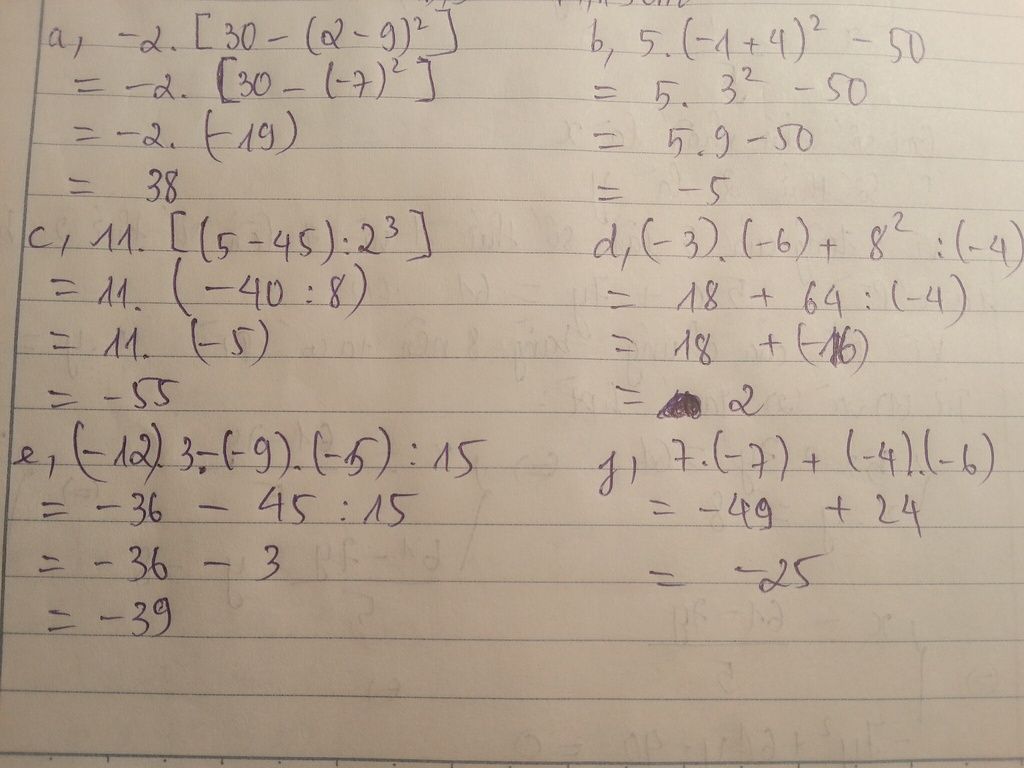 a, -2. [30 - (2 - 9)²]
= -2. [30 - (-7)²]
= -2. (-19)
= 38
b, 5. (-1 + 4)² - 50
= 5. 3² - 50
= 5.9 - 50
= -5
c, 11. [(5 - 45) : 2³]
= 11. (-40 : 8)
= 11. (-5)
= -55
d, (-3). (-6) + 8² : (-4)
= 18 + 64 : (-4)
= 18 + (-16)
= 2
e, (-12). 3 - (-9). (-5) : 15
= -36 - 45 : 15
= -36 - 3
= -39
f, 7. (-7) + (-4). (-6)
= -49 + 24
= -25